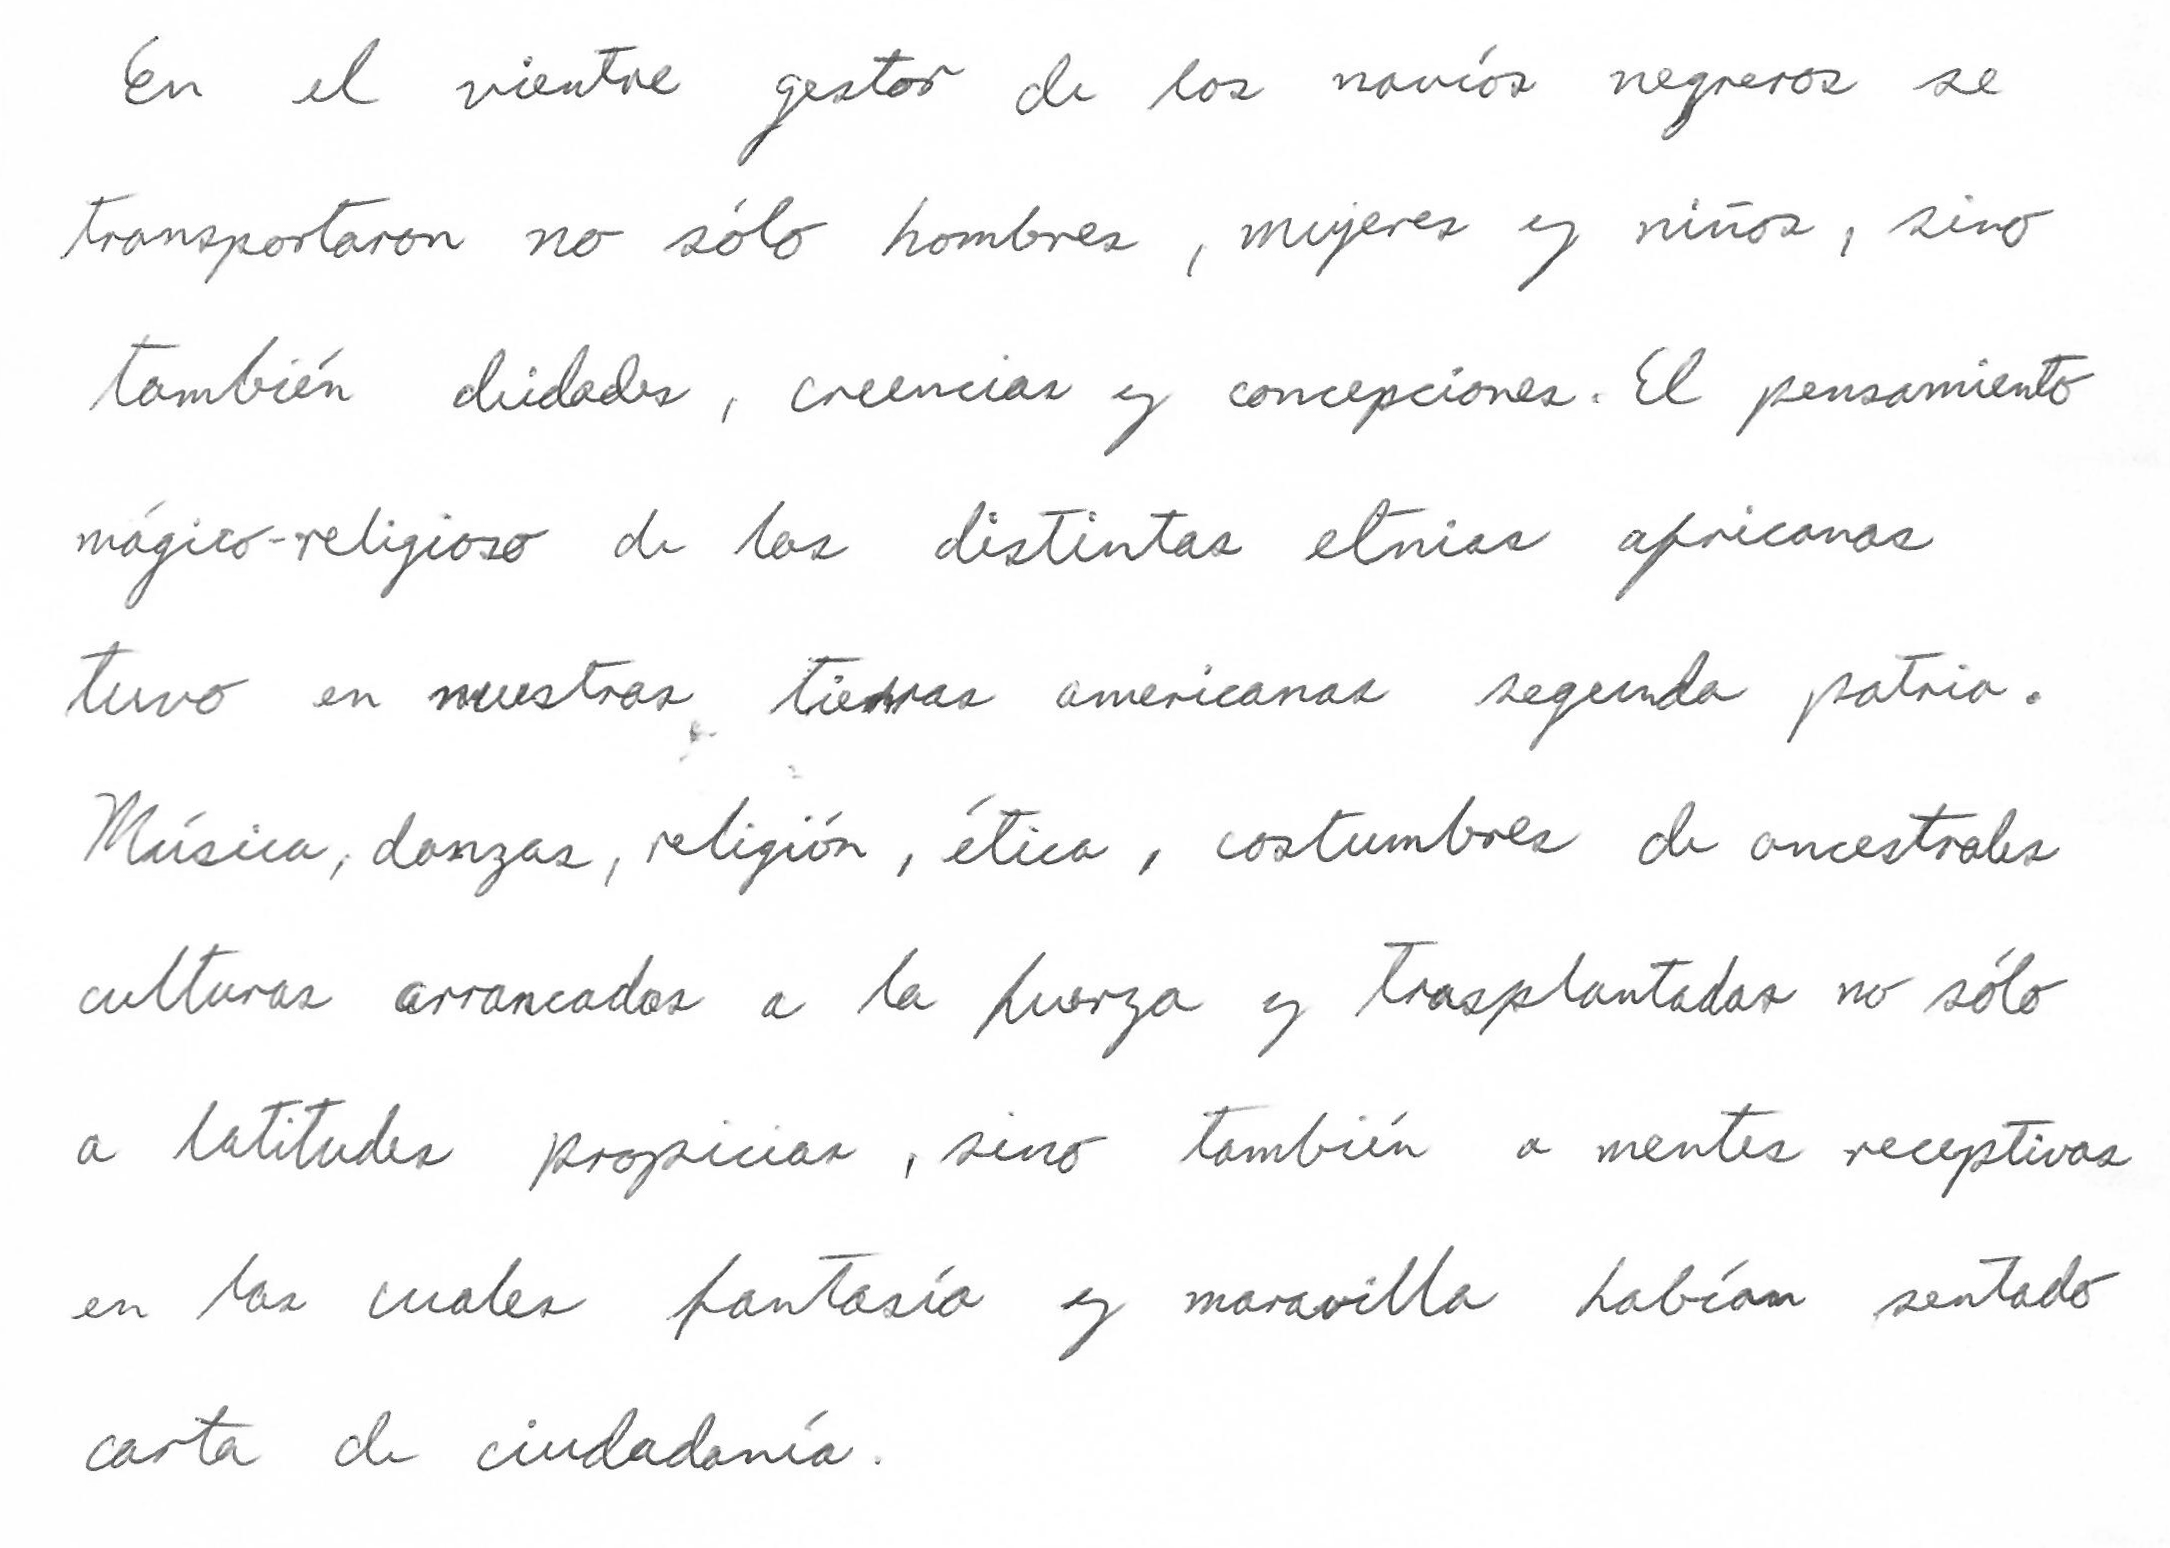 En el vientre gestor de los navíos negreros se
transportaron no sólo hombres, mujeres y niños, sino
también deidades, creencias y concepciones. El pensamiento
mágico-religioso de las distintas etnias africanas
tuvo en nuestras tierras americanas segunda patria.
Música, danzas, religión, ética, costumbres de ancestrales
culturas arrancadas a la fuerza y trasplantadas no sólo
a latitudes propicias, sino también a mentes receptivas
en las cuales fantasía y maravilla habían sentado
carta de ciudadanía.